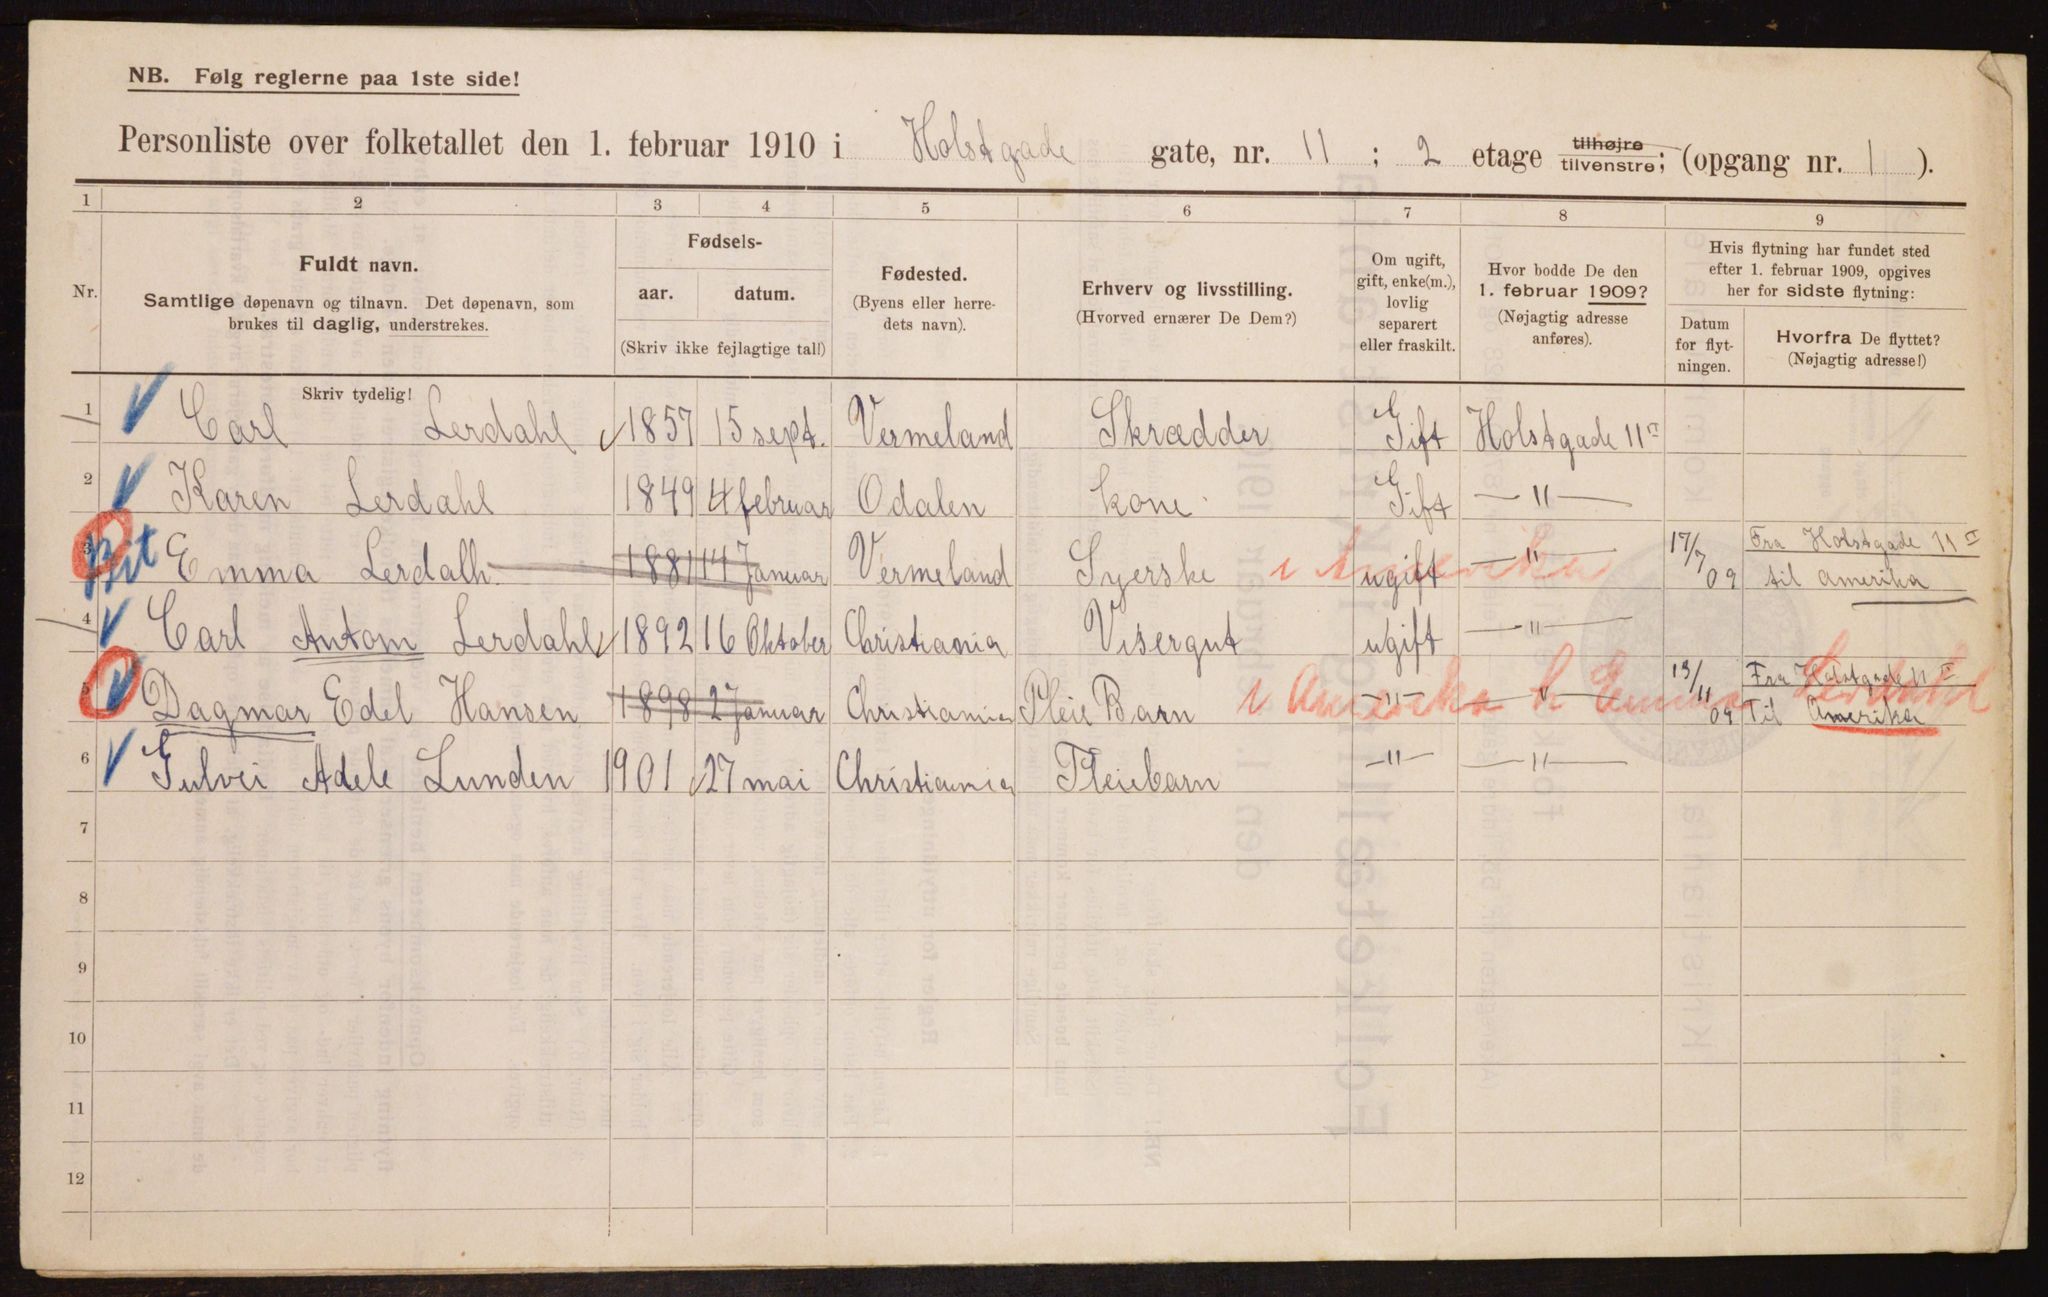 NB. Følg reglerne paa 1ste side!
Personliste over folketallet den 1. februar 1910 i Holstgade gate, nr. 11 ; 2 etage tilhøjre tilvenstre; (opgang nr. 1 ).
1 2 3 4 5 6 7 8 9
Nr.
Fuldt navn.
Samtlige døpenavn og tilnavn. Det døpenavn, som
brukes til daglig, understrekes.
Skriv tydelig!
Fødsels-
aar. datum.
(Skriv ikke fejlagtige tal!)
Fødested.
(Byens eller herre-
dets navn).
Erhverv og livsstilling.
(Hvorved ernærer De Dem?)
Om ugift,
gift, enke(m.),
lovlig
separert
eller fraskilt.
Hvor bodde De den
1. februar 1909?
(Nøjagtig adresse
anføres).
Hvis flytning har fundet sted
efter 1. februar 1909, opgives
her for sidste flytning:
Datum
for flyt-
ningen.
Hvorfra De flyttet?
(Nøjagtig adresse!)
1 Carl Lerdahl 1857 15 sept. Vermeland Skrædder Gift Holstgade 11 II
2 Karen Lerdahl 1849 4 februar Odalen kone Gift — " —
3 Emma Lerdalh 1881 14 Januar Vermeland Syerske i Amerika ugift — " — 17/7 09 Fra Holstgade 11 II
til Amerika
4 Carl Antom Lerdahl 1892 16 Oktober Christiania Visergut ugift — " —
5 Dagmar Edel Hansen 1898 2 Januar Christiania Pleie Barn i Amerika — " — — " — Emma Lerdahl 13/11 09 Fra Holstgade 11 II
Til Amerika
6 Gulvei Adele Lunden 1901 27 mai Christiania Pleiebarn — " — — " —
7
8
9
10
11
12